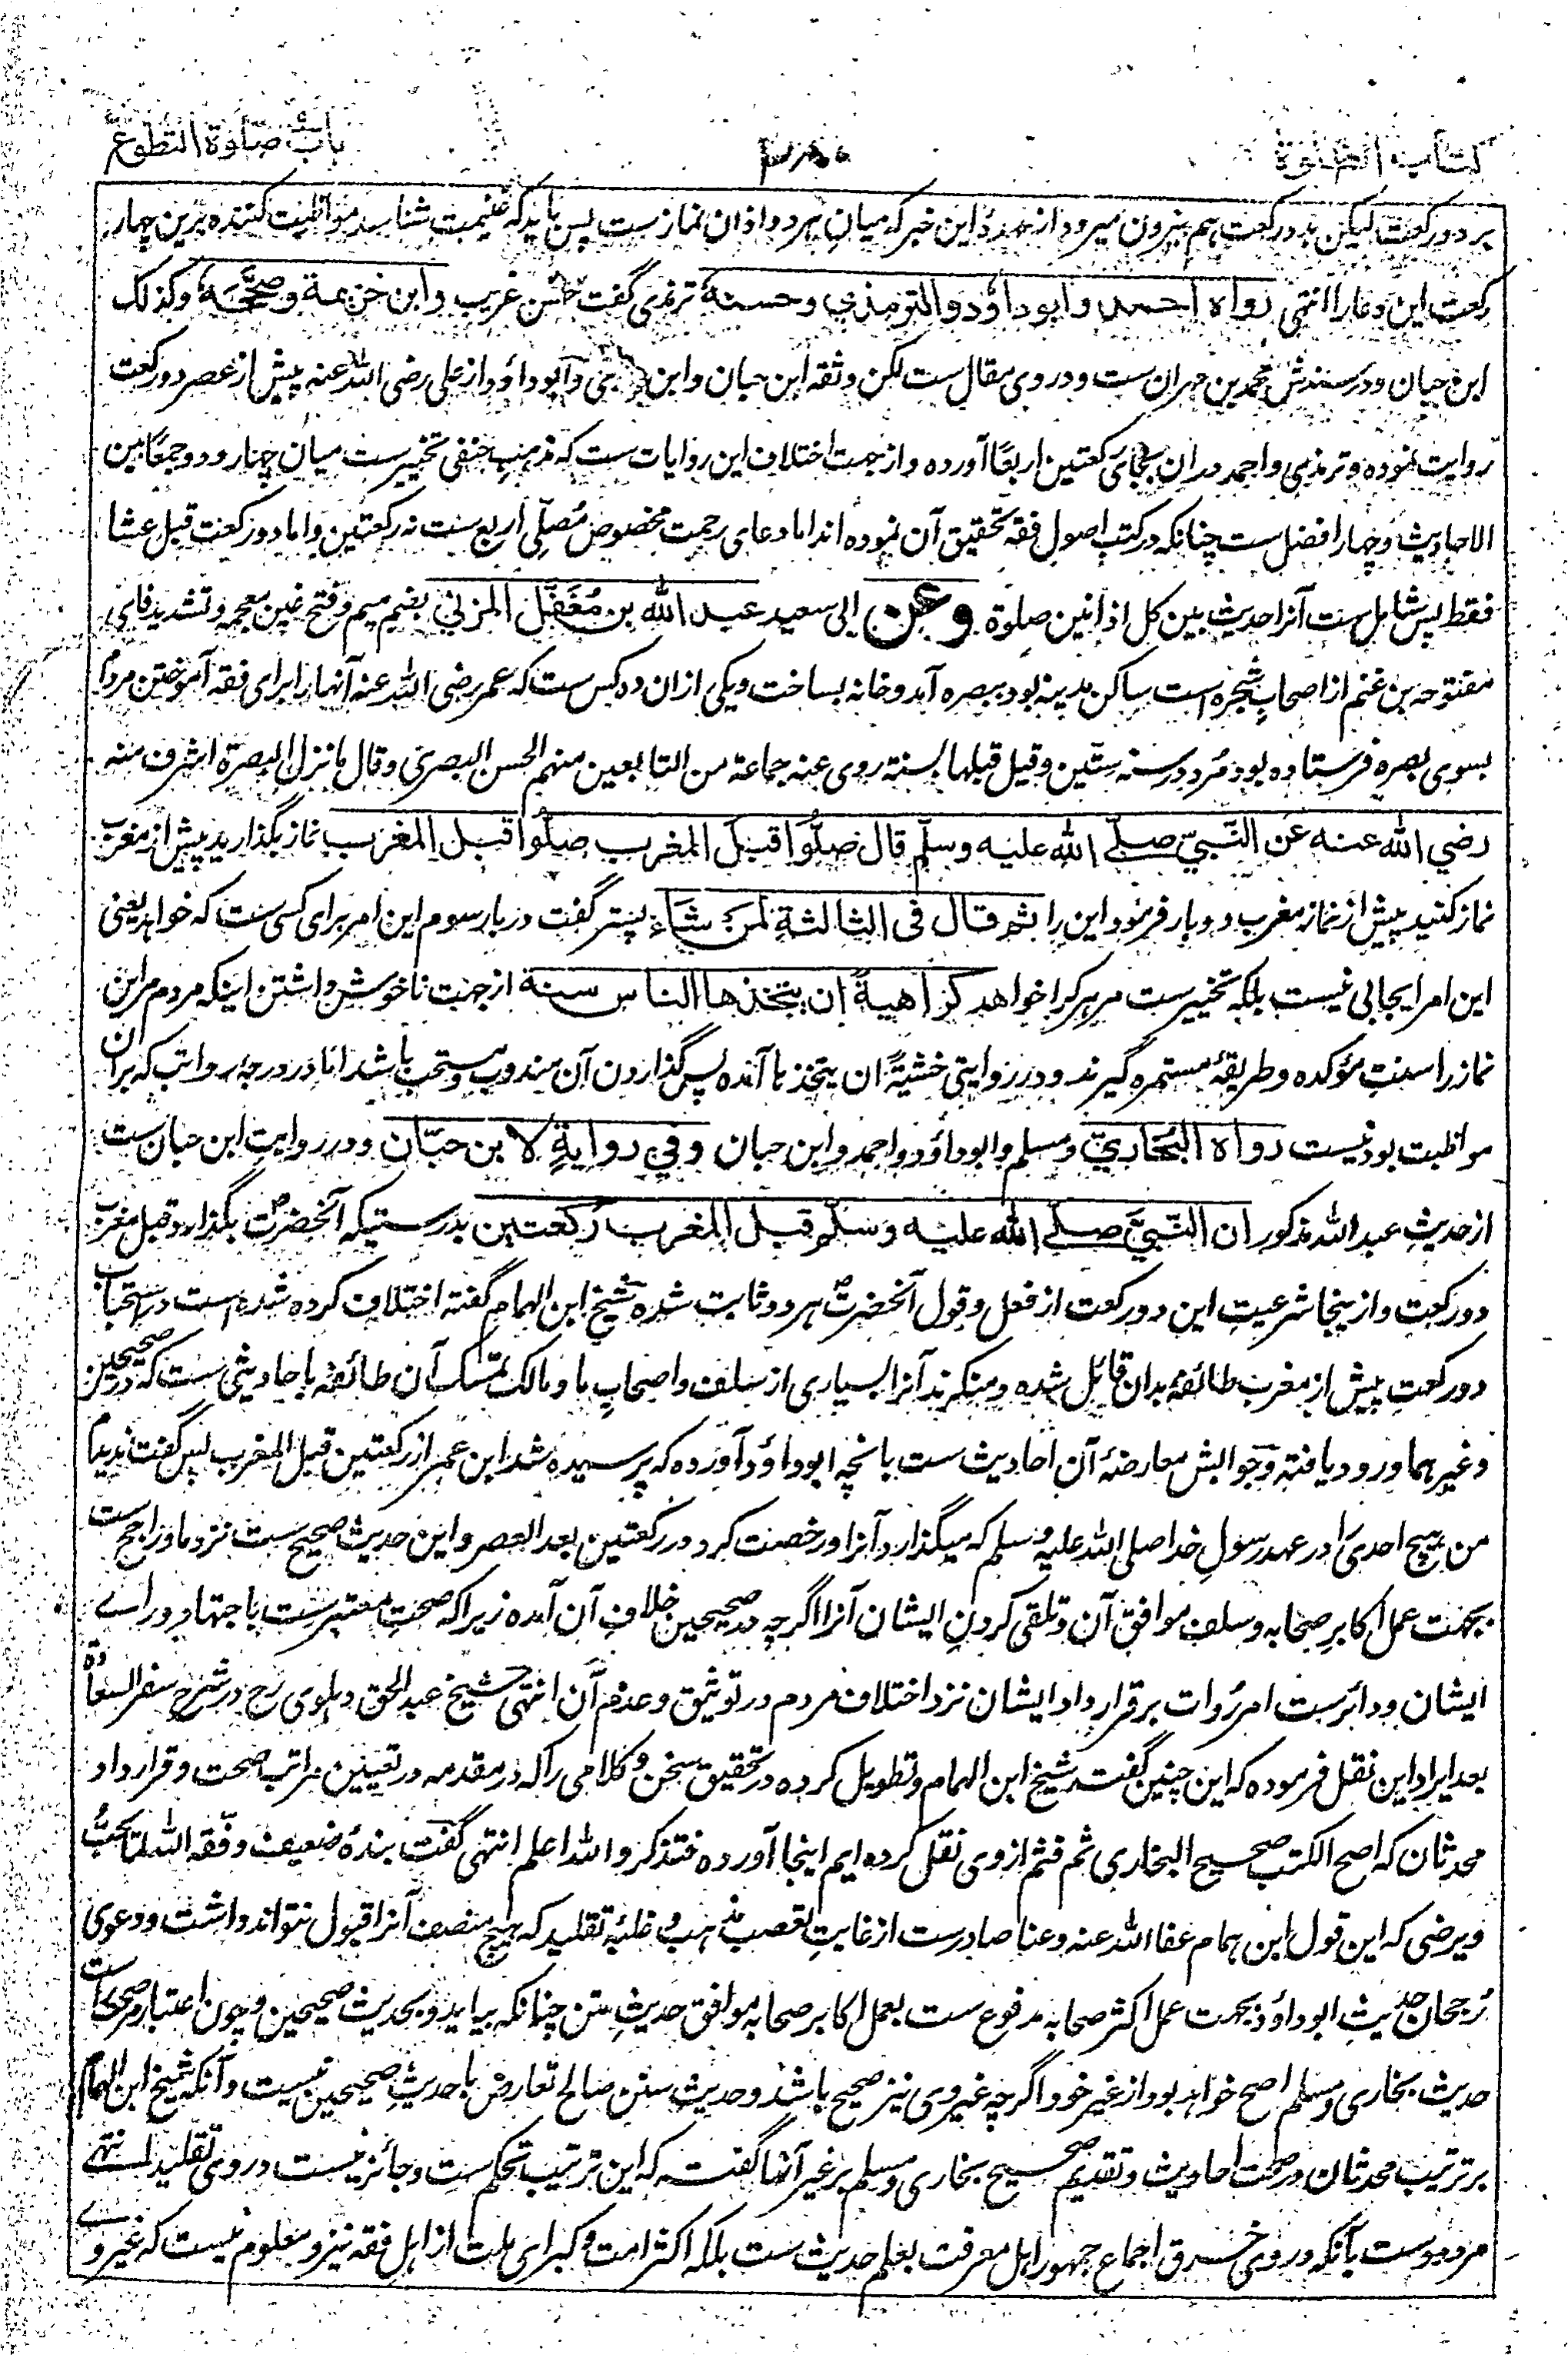 كتاب الصلوة
باب صلوة التطوع
بر دو رکعت لیکن بدو رکعت هم بیرون میرود از عهدهٔ این خبر که میان هر دو اذان نمازست پس باید که غنیمت شناسد مواظبت کننده برین چهار
رکعت این دعا را انتهی رواه احمد وابوداؤد والترمذي وحسنه ترمذی گفت حسن غریب وابن خزيمة وصححه وکذلک
ابن حبان و در سندش محمد بن مهران ست و در وی مقال ست لکن وثقه ابن حبان وابن و ابوداؤد از علی رضی الله عنه پیش از عصر دو رکعت
روایت نموده و ترمذی و احمد دران بجای رکعتین اربعًا آورده و از جهت اختلاف این روایات ست که مذهب حنفی تخییرست میان چهار و دو جمعًا بین
الاحادیث و چهار افضل ست چنانکه در کتب اصول فقه تحقیق آن نموده اند اما دعای رحمت مخصوص مُصلّی اربع ست نه رکعتین و اما دو رکعت قبل عشا
فقط پس شامل ست آنرا حدیث بین کل اذانین صلوة وعن ابی سعید عبد الله بن مُغَفَّل المزنيّ بضم میم و فتح غین معجمه و تشدید فای
مفتوحه بن غنم از اصحابِ شجره است ساکن مدینه بود ببصره آمد و خانه بساخت و یکی ازان ده کس ست که عمر رضی الله عنه آنها را برای فقه آموختن مردم
بسوی بصره فرستاده بود مُرد در سنه ستین وقیل قبلها بسنة روی عنه جماعة من التابعین منهم الحسن البصری وقال ما نزل البصرة اشرف منه
رضي الله عنه عن النبيّ صلى الله عليه وسلم قال صلّوا قبل المغرب صلّوا قبل المغرب نماز بگذارید پیش از مغرب
نماز کنید پیش از نماز مغرب دو بار فرمود این را ثم قال في الثالثة لمن شاء پستر گفت در بار سوم این امر برای کسی ست که خواهد یعنی
این امر ایجابی نیست بلکه تخییرست مر هر کرا خواهد كراهيةً ان يتخذها الناس سنة از جهت ناخوش داشتن اینکه مردم مر این
نماز را سنتِ مؤکده و طریقهٔ مستمره گیرند و در روایتی خشیةً ان یتخذ ما آمده پس گذاردن آن مندوب و مستحب باشد اما در درجه رواتب که بران
مواظبت بود نیست رواه البخاريّ ومسلم وابوداؤد واحمد وابن حبان وفي روايةٍ لابن حبّان و در روایتِ ابن حبان ست
از حدیثِ عبد الله مذکور ان النبيّ صلى الله عليه وسلم قبل المغرب ركعتين بدرستیکه آنحضرت بگذارد قبل مغرب
دو رکعت و ازینجا شرعیت این دو رکعت از فعل و قول آنحضرت هر دو ثابت شده شیخ ابن الهمام گفته اختلاف کرده شده است در استحباب
دو رکعتِ پیش از مغرب طائفهٔ بدان قائل شده و منکرند آنرا بسیاری از سلف و اصحابِ ما و مالک تمسک آن طائفه باحادیثی ست که در صحیحین
و غیر هما ورود یافته و جوابش معارضهٔ آن احادیث ست بانچه ابوداؤد آورده که پرسیده شد ابن عمر از رکعتین قبل المغرب پس گفت ندیدم
من هیچ احدی را در عهد رسولِ خدا صلی الله علیه وسلم که میگذارد آنرا و رخصت کرد در رکعتین بعد العصر و این حدیث صحیح ست نزد ما و راجح ست
بجهت عمل اکابرِ صحابه و سلف موافق آن و تلقی کردنِ ایشان آنرا اگرچه در صحیحین خلافِ آن آمده زیرا که صحت معتبرست باجتهاد و رای
ایشان و دائرست امر رُوات بر قرار داد ایشان نزد اختلاف مردم در توثیق و عدم آن انتهی شیخ عبد الحق دهلوی رح در شرح سفر السعادة
بعد ایراد این نقل فرموده که این چنین گفت شیخ ابن الهمام و تطویل کرده در تحقیق سخن و کلامی را که در مقدمه در تعیین مراتب صحت و قرار داد
محدثان که اصح الکتب صحیح البخاری ثم فثم از وی نقل کرده ایم اینجا آورده فتذکر والله اعلم انتهی گفت بندهٔ ضعیف وفقه الله لما یحبّ
ویرضی که این قول ابن همام عفا الله عنه وعنا صادرست از غایتِ تعصب مذهب و غلبهٔ تقلید که هیچ منصف آنرا قبول نتواند داشت و دعوی
رُجحان حدیثِ ابوداؤد بجهت عمل اکثر صحابه مدفوع ست بعمل اکابر صحابه موافق حدیثِ متن چنانکه بیاید و بحدیث صحیحین و چون اعتبار مر صحت راست
حدیث بخاری و مسلم اصح خواهد بود از غیر خود اگرچه غیر وی نیز صحیح باشد و حدیث سنن صالح تعارض با حدیثِ صحیحین نیست و آنکه شیخ ابن الهمام
بر ترتیب محدثان در صحت احادیث و تقدیم صحیح بخاری و مسلم بر غیر آنها گفته که این ترتیب تحکم ست و جائز نیست در وی تقلید انتهی
مردودست بآنکه در وی خرق اجماع جمهور اهل معرفت بعلم حدیث ست بلکه اکثر امت و کبرای ملت از اهل فقه نیز و معلوم نیست که غیر وی